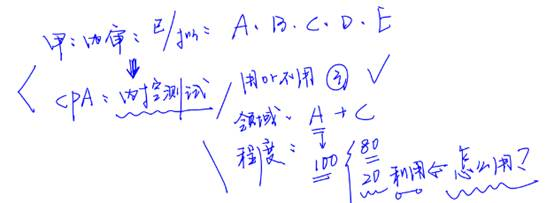 甲:内审:已/拟: A.B.C.D.E
CPA:内控测试
用or不用 ✓
领域: A + C
程度: 100
80
20 利用 怎么用?